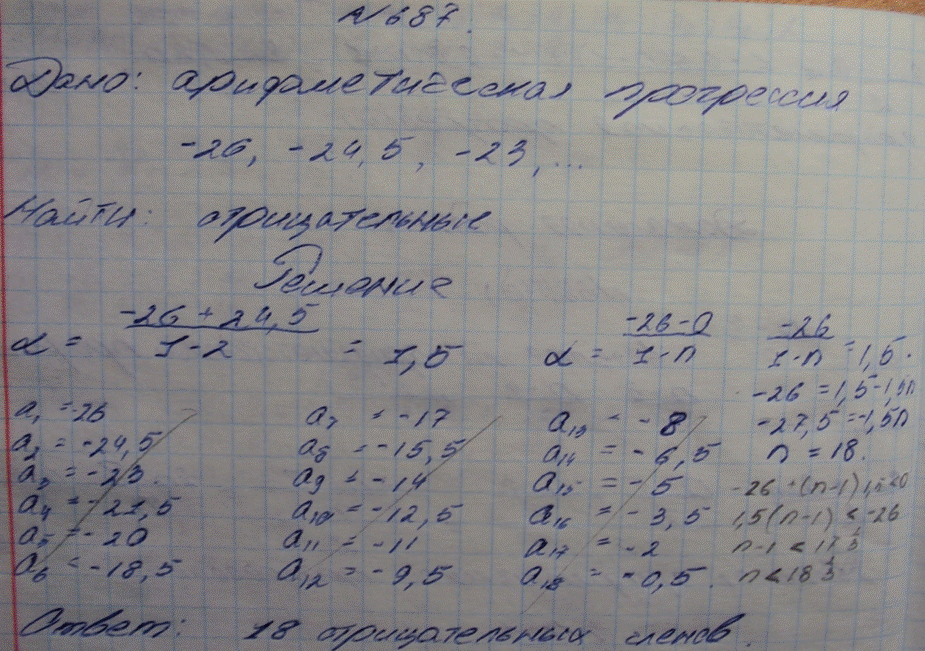 № 687.
Дано: арифметическая прогрессия
-26, -24,5, -23, ...
Найти: отрицательные
Решение
d = (-26 + 24,5)/(1-2) = 1,5
d = (-26-0)/(1-n) = (-26)/(1-n) = 1,5.
-26 = 1,5-1,5n
-27,5 = -1,5n
n = 18.
a₁ = -26
a₂ = -24,5
a₃ = -23.
a₄ = -21,5
a₅ = -20
a₆ = -18,5
a₇ = -17
a₈ = -15,5
a₉ = -14
a₁₀ = -12,5
a₁₁ = -11
a₁₂ = -9,5
a₁₃ = -8
a₁₄ = -6,5
a₁₅ = -5
a₁₆ = -3,5
a₁₇ = -2
a₁₈ = -0,5.
-26 + (n-1)1,5<0
1,5(n-1) < -26
n-1 < 17 1/3
n < 18 1/3
Ответ: 18 отрицательных членов.